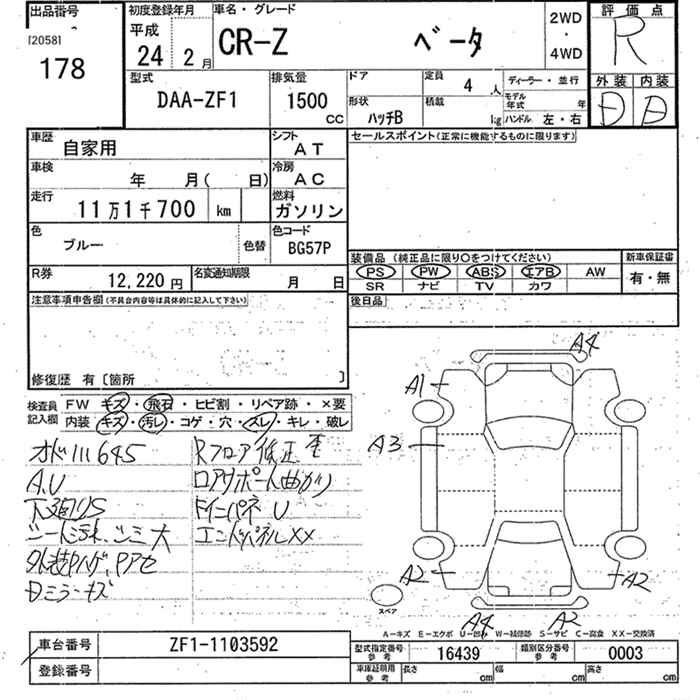 出品番号
[20581
178
初度登録年月
平成
24 2 月
車名・グレード
CR-Z ベータ
2WD
・
4WD
評価点
R
外装 内装
D D
型式
DAA-ZF1
排気量
1500 CC
ドア
形状
ハッチB
定員
4 人
積載
kg
ディーラー・並行
モデル年式 年
ハンドル 左・右
車歴
自家用
シフト
AT
車検
年 月( 日)
冷房
AC
走行
11万1千700 km
燃料
ガソリン
色
ブルー
色替
色コード
BG57P
R券
12,220 円
名変通知期限
月 日
セールスポイント(正常に機能するものに限ります)
装備品(純正品に限り○をつけてください)
PS PW ABS エアB AW
SR ナビ TV カワ
新車保証書
有・無
後日品
注意事項申告欄(不具合内容等は具体的に記入して下さい)
修復歴 有〔箇所 〕
検査員記入欄
FW キズ・飛石・ヒビ割・リペア跡・×要
内装 キズ・汚レ・コゲ・穴・スレ・キレ・破レ
A.U
下廻りS
Rフロア修正
ロアサポート曲がり
エンドパネルXX
A4
A1
A3
A2
A2
A4
A2
スペア
A-キズ E-エクボ U-凹 W-補修跡 S-サビ C-腐食 XX-交換済
車台番号
ZF1-1103592
登録番号
型式指定番号 参考
16439
類別区分番号 参考
0003
車庫証明用 参考
長さ cm
幅 cm
高さ cm